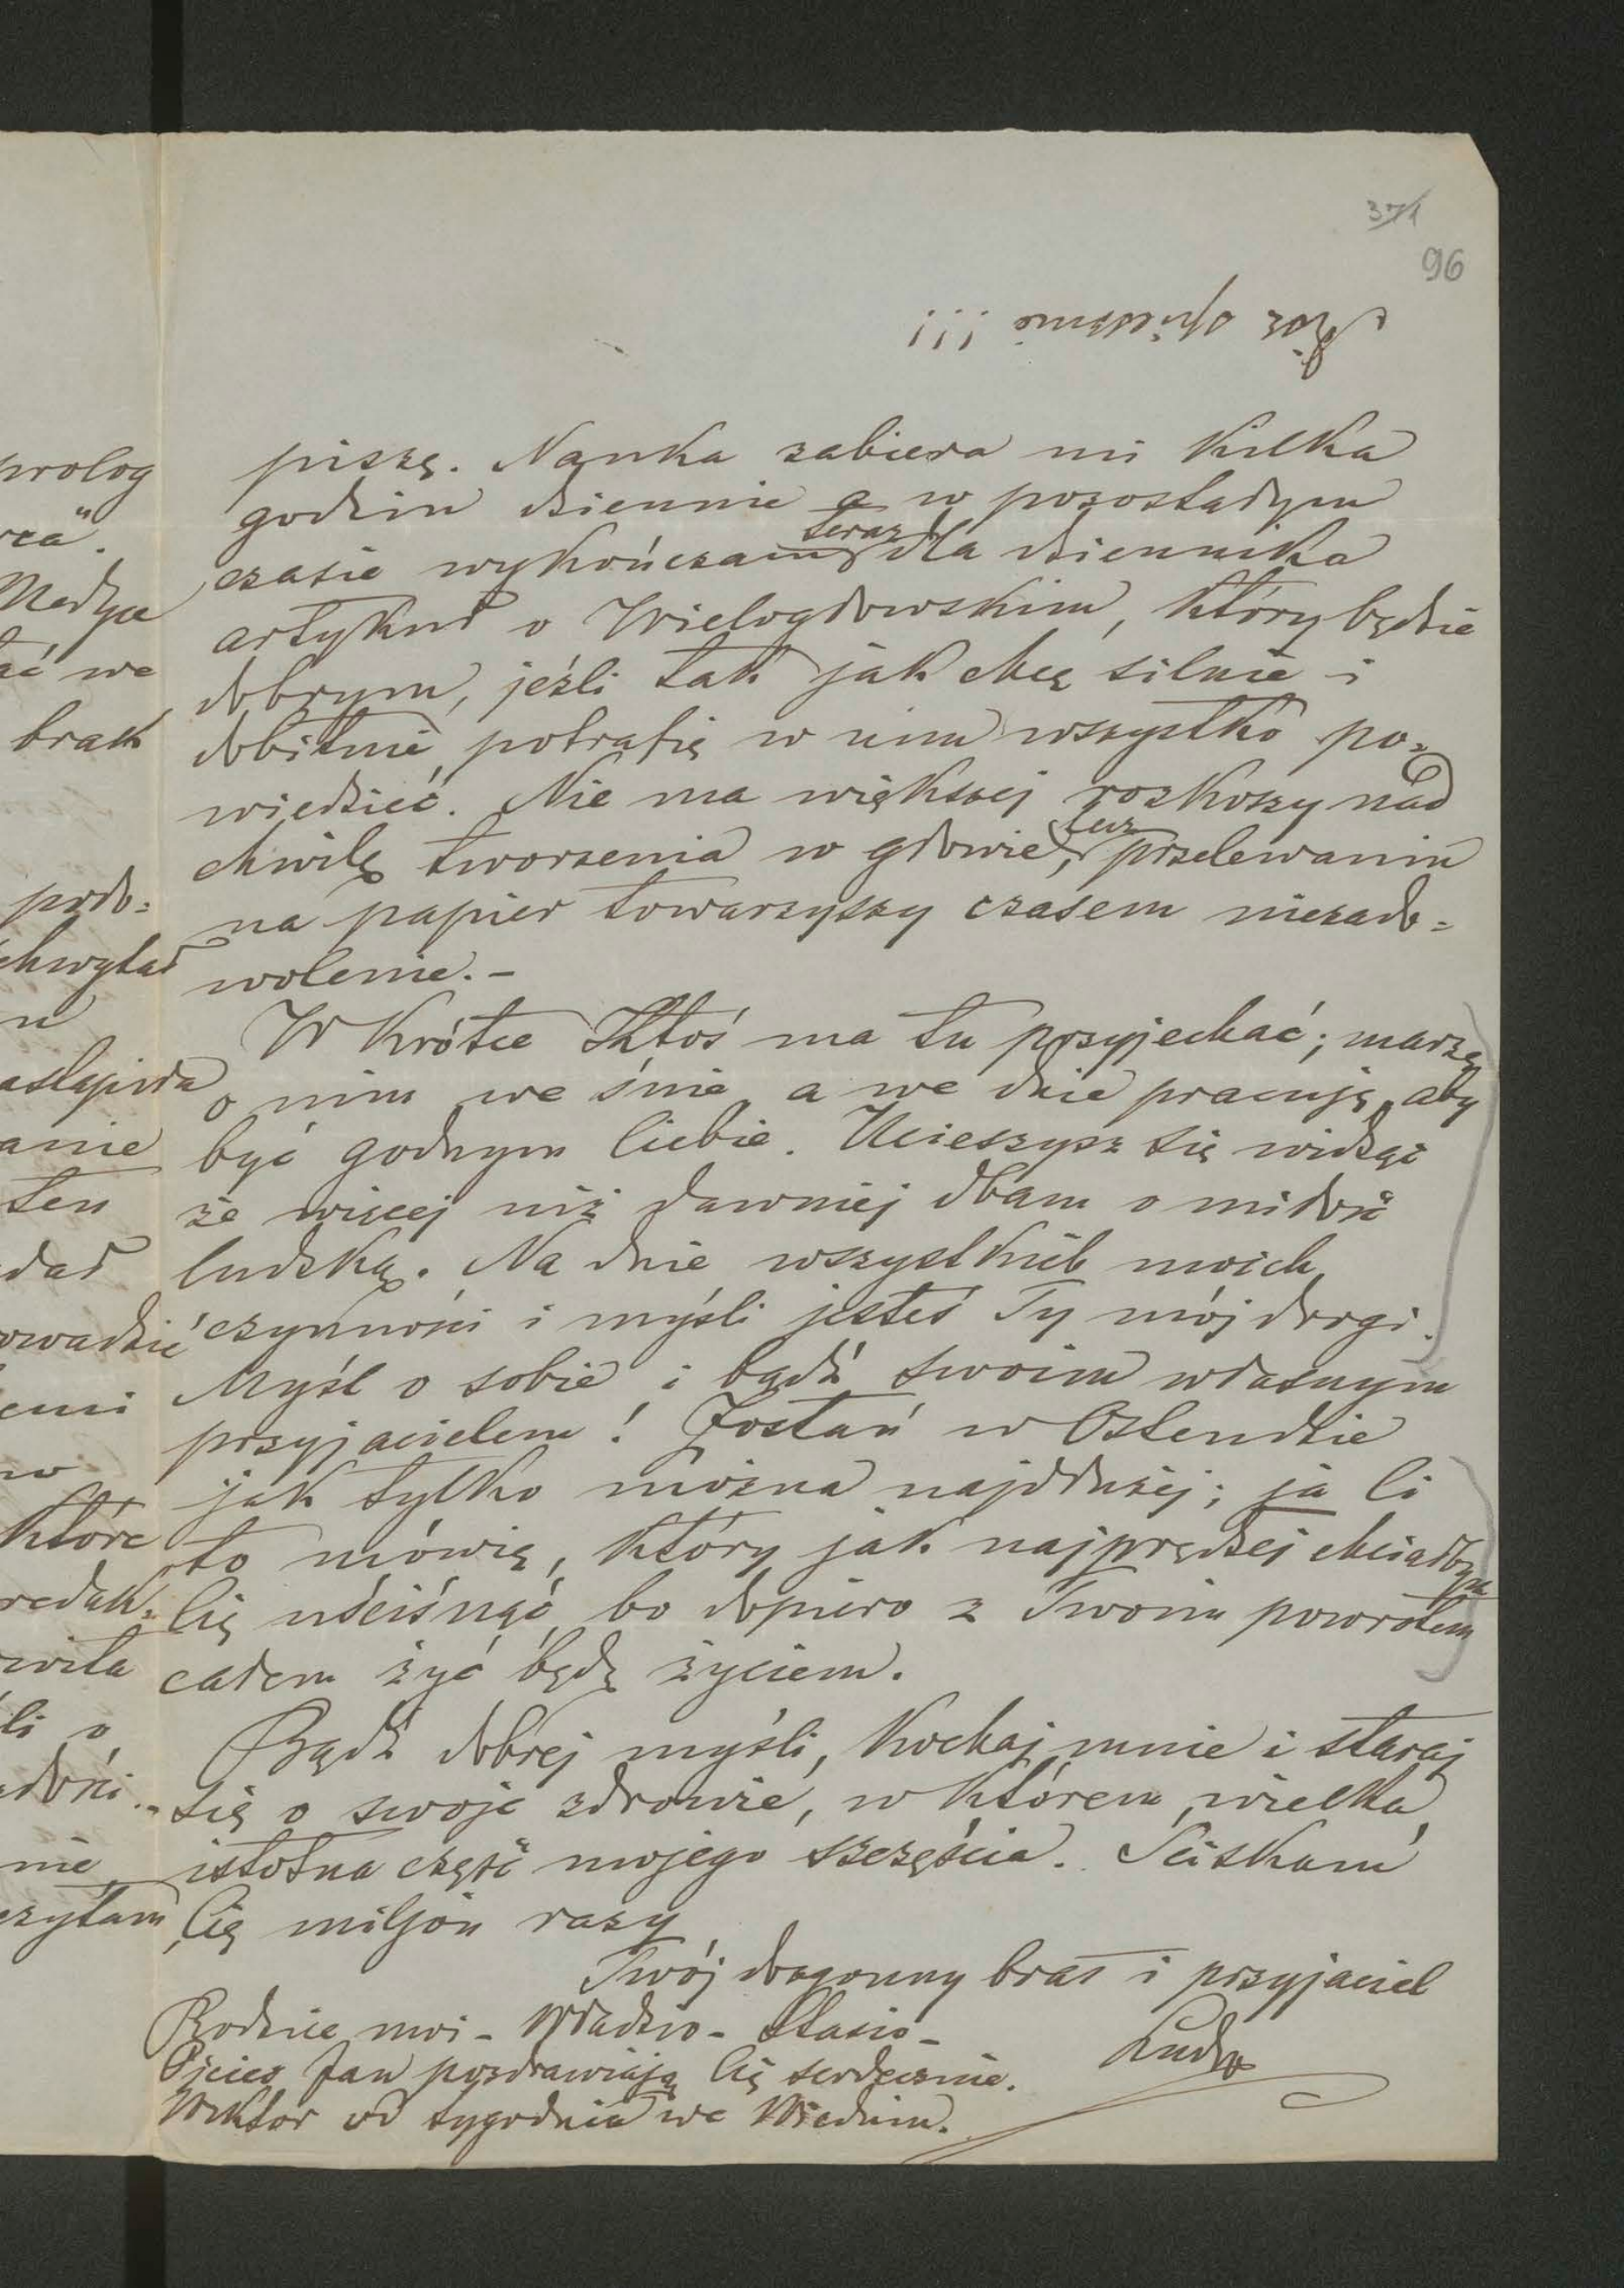 371
96
!!!
prolog
rca".
Medyce
ać we
brak
podo=
chwytał
n
astąpiła
anie
ten
dał
owadzić
emi
w
które
redak=
wiła
li o
nie
czytam
piszę. Nauka zabiera mi kilka
godzin dziennie a w pozostałym
czasie wykończam teraz dla dziennika
artykuł o Wielogłowskim, który będzie
dobrym, jeźli tak jak chcę silnie i
dobitnie potrafię w nim wszystko po=
wiedzieć. Nie ma większej rozkoszy nad
chwilę tworzenia w głowie, lecz przelewaniu
na papier towarzyszy czasem niezado=
wolenie. -
W krótce Ktoś ma tu przyjechać; marzę
o nim we śnie a we dnie pracuję aby
być godnym Ciebie. Ucieszysz się widząc
że więcej niż dawniej dbam o miłość
ludzką. Na dnie wszystkich moich
czynności i myśli jesteś Ty mój drogi.
Myśl o sobie i bądź swoim własnym
przyjacielem! Zostań w Ostendzie
jak tylko można najdłużej; ja Ci
to mówię, który jak najprędzej chciałbym
Cię uściśnąć, bo dopiero z Twoim powrotem
całem żyć będę życiem.
Bądź dobrej myśli, kochaj mnie i staraj
się o swoje zdrowie, w którem wielka
istotna część mojego szczęścia. Ściskam
Cię miljon razy
Twój dozgonny brat i przyjaciel
Rodzice moi - Władzio - Stasio -
Ojciec Jan pozdrawiają Cię serdecznie.
Wiktor od tygodnia we Wiedniu.